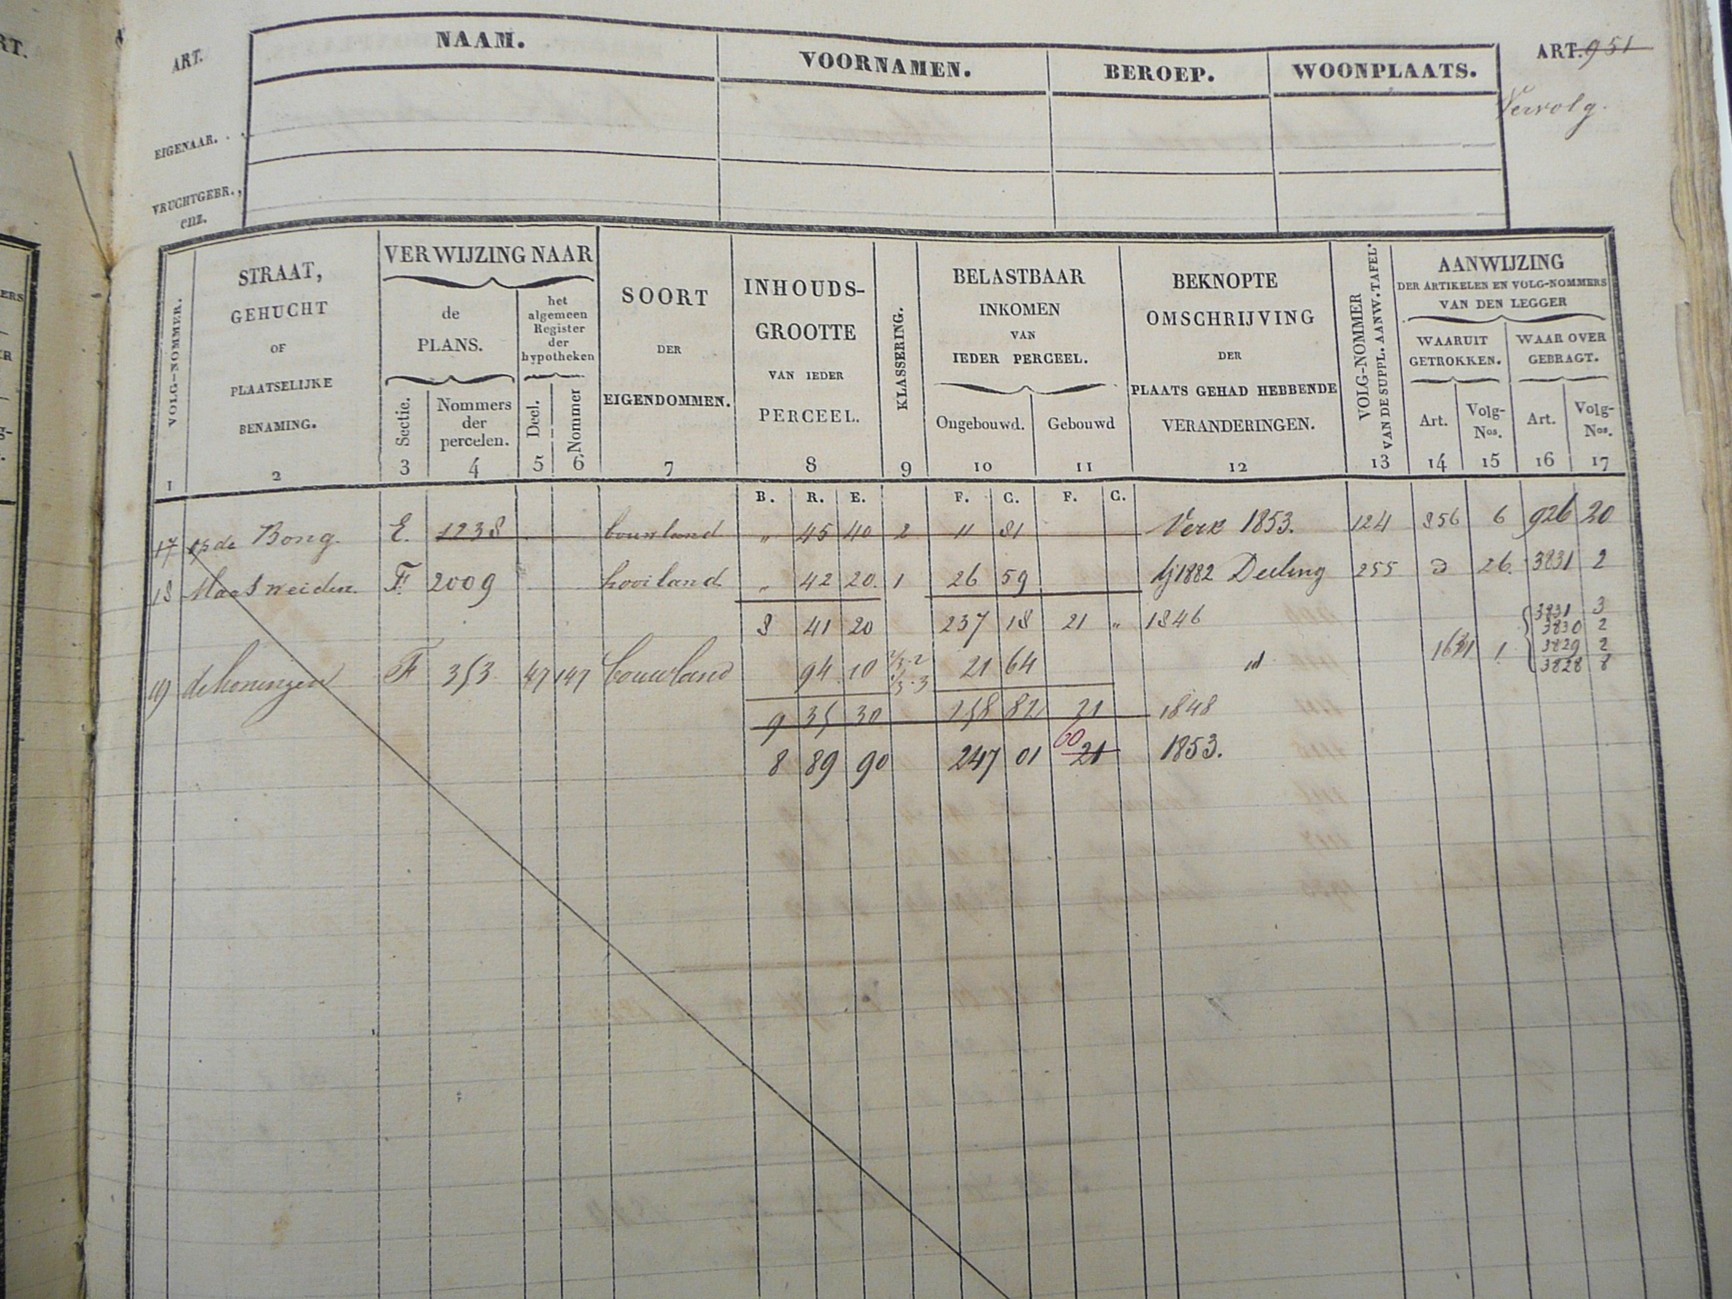 ART.
NAAM. VOORNAMEN. BEROEP. WOONPLAATS.
ART. 951
Vervolg.
EIGENAAR. . .
VRUCHTGEBR.,
enz.
VOLG-NOMMER.
STRAAT,
GEHUCHT
OF
PLAATSELIJKE
BENAMING.
VERWIJZING NAAR
de
PLANS.
het
algemeen
Register
der
hypotheken
Sectie.
Nommers
der
percelen.
Deel.
Nommer
SOORT
DER
EIGENDOMMEN.
INHOUDS-
GROOTTE
VAN IEDER
PERCEEL.
KLASSERING.
BELASTBAAR
INKOMEN
VAN
IEDER PERCEEL.
Ongebouwd. Gebouwd
BEKNOPTE
OMSCHRIJVING
DER
PLAATS GEHAD HEBBENDE
VERANDERINGEN.
VOLG-NOMMER
VAN DE SUPPL. AANW. TAFEL.
AANWIJZING
DER ARTIKELEN EN VOLG-NOMMERS
VAN DEN LEGGER
WAARUIT
GETROKKEN.
WAAR OVER
GEBRAGT.
Art. Volg-
Nos.
Art. Volg-
Nos.
1 2 3 4 5 6 7 8 9 10 11 12 13 14 15 16 17
B. R. E. F. C. F. C.
17 op de Bong. E. 1238 bouwland „ 45 40 2 11 81 Verk 1853. 124 856 6 926 20
18 Maasweiden F. 2009 hooiland „ 42 20 1 26 59 dj 1882 Deeling 255 26. 3831 2
8 41 20 237 18 21 „ 1846
19 de koningen F 353 47 147 bouwland 94 10 2/3.2 1/3.3 21 64 id 1631 1
3831 3
3830 2
3829 2
3828 8
9 35 30 258 82 21 1848
8 89 90 247 01 60 21 1853.